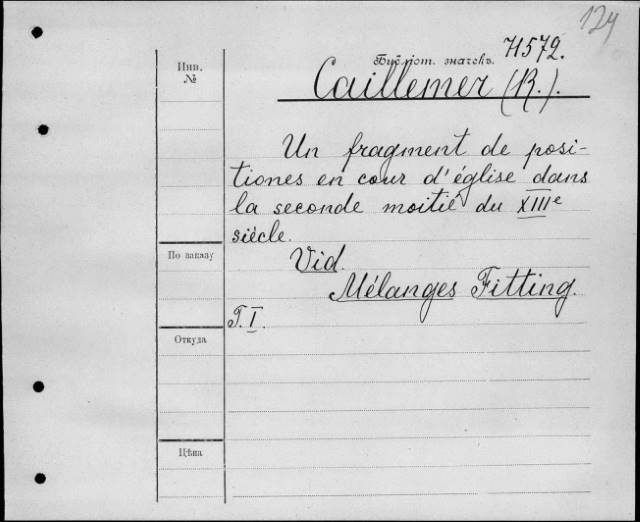 124
71572.
Библіот. значекъ.
Инв.
№
Caillemer (R.).
Un fragment de posi-
tiones en cour d'église dans
la seconde moitié du XIIIe
siècle.
Vid.
По заказу
Mélanges Fitting.
T. I.
Откуда
Цѣна